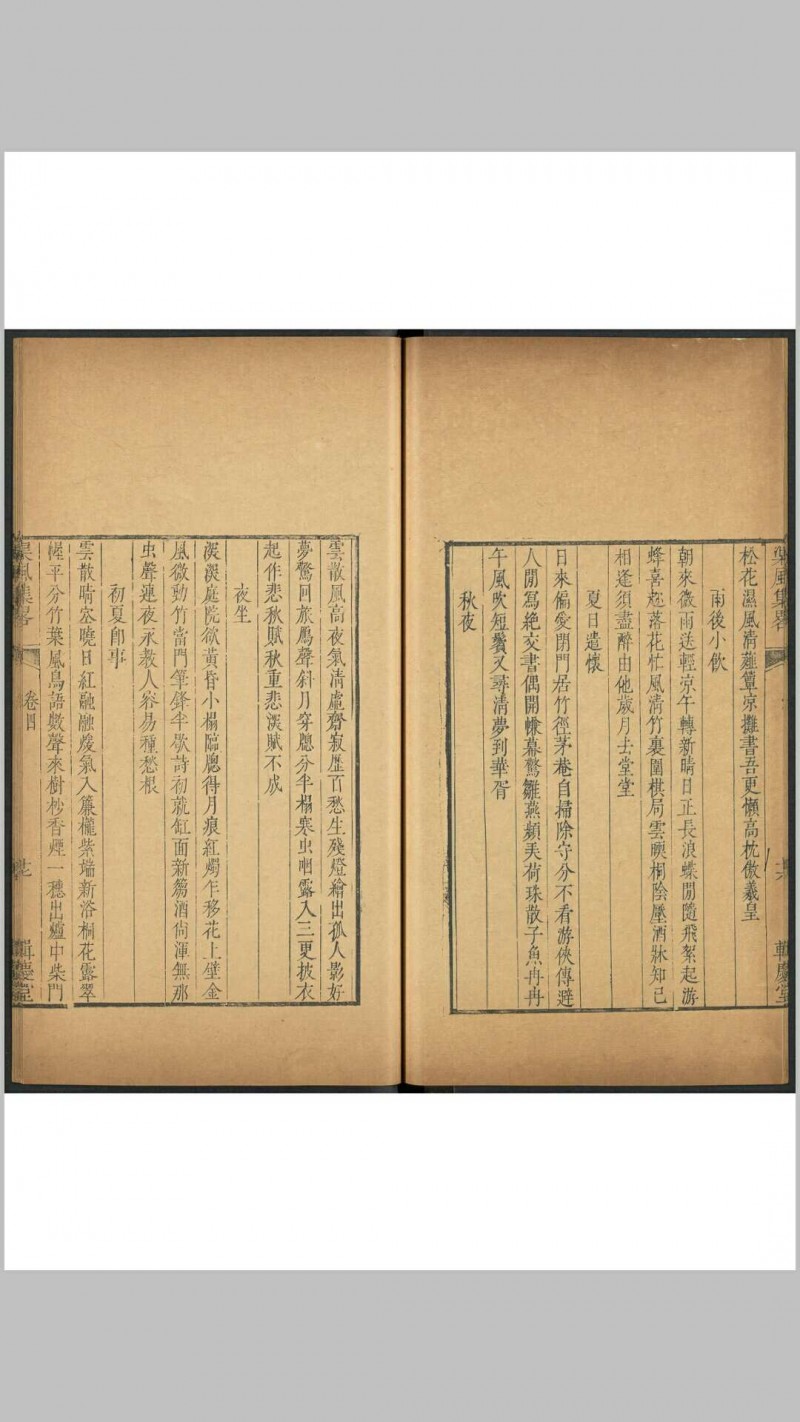 松花濕風清薤簟凉攤書吾更懶高枕傲羲皇
雨後小飲
朝來微雨送輕凉午轉新晴日正長浪蝶閒隨飛絮起游
蜂喜趂落花忙風清竹裏圍棋局雲暎桐陰壓酒牀知己
相逢須盡醉由他歲月去堂堂
夏日遣懷
日來偏愛閉門居竹徑茅菴自掃除守分不看游俠傳避
人閒寫絶交書偶開幙幕驚雛燕頻丟荷珠散子魚冉冉
午風吹短鬢又尋清夢到華胥
秋夜
集畧
輯慶堂
雲散風高夜氣清虛齋寂歴百愁生殘燈繪出孤人影好
夢驚回旅鴈聲斜月穿牕分半榻寒虫咽露入三更披衣
起作悲秋賦秋重悲深賦不成
夜坐
深深庭院欲黃昏小榻臨牕得月痕紅燭乍移花上壁金
風微動竹當門筆鋒半歇詩初就缸面新篘酒尙渾無那
虫聲連夜永教人容易種愁根
初夏卽事
雲散晴空曉日紅融融煖氣入簾櫳紫端新浴桐花露翠
幄平分竹葉風鳥語數聲來樹杪香煙一穗出爐中柴門
風集畧
卷四
輯慶堂